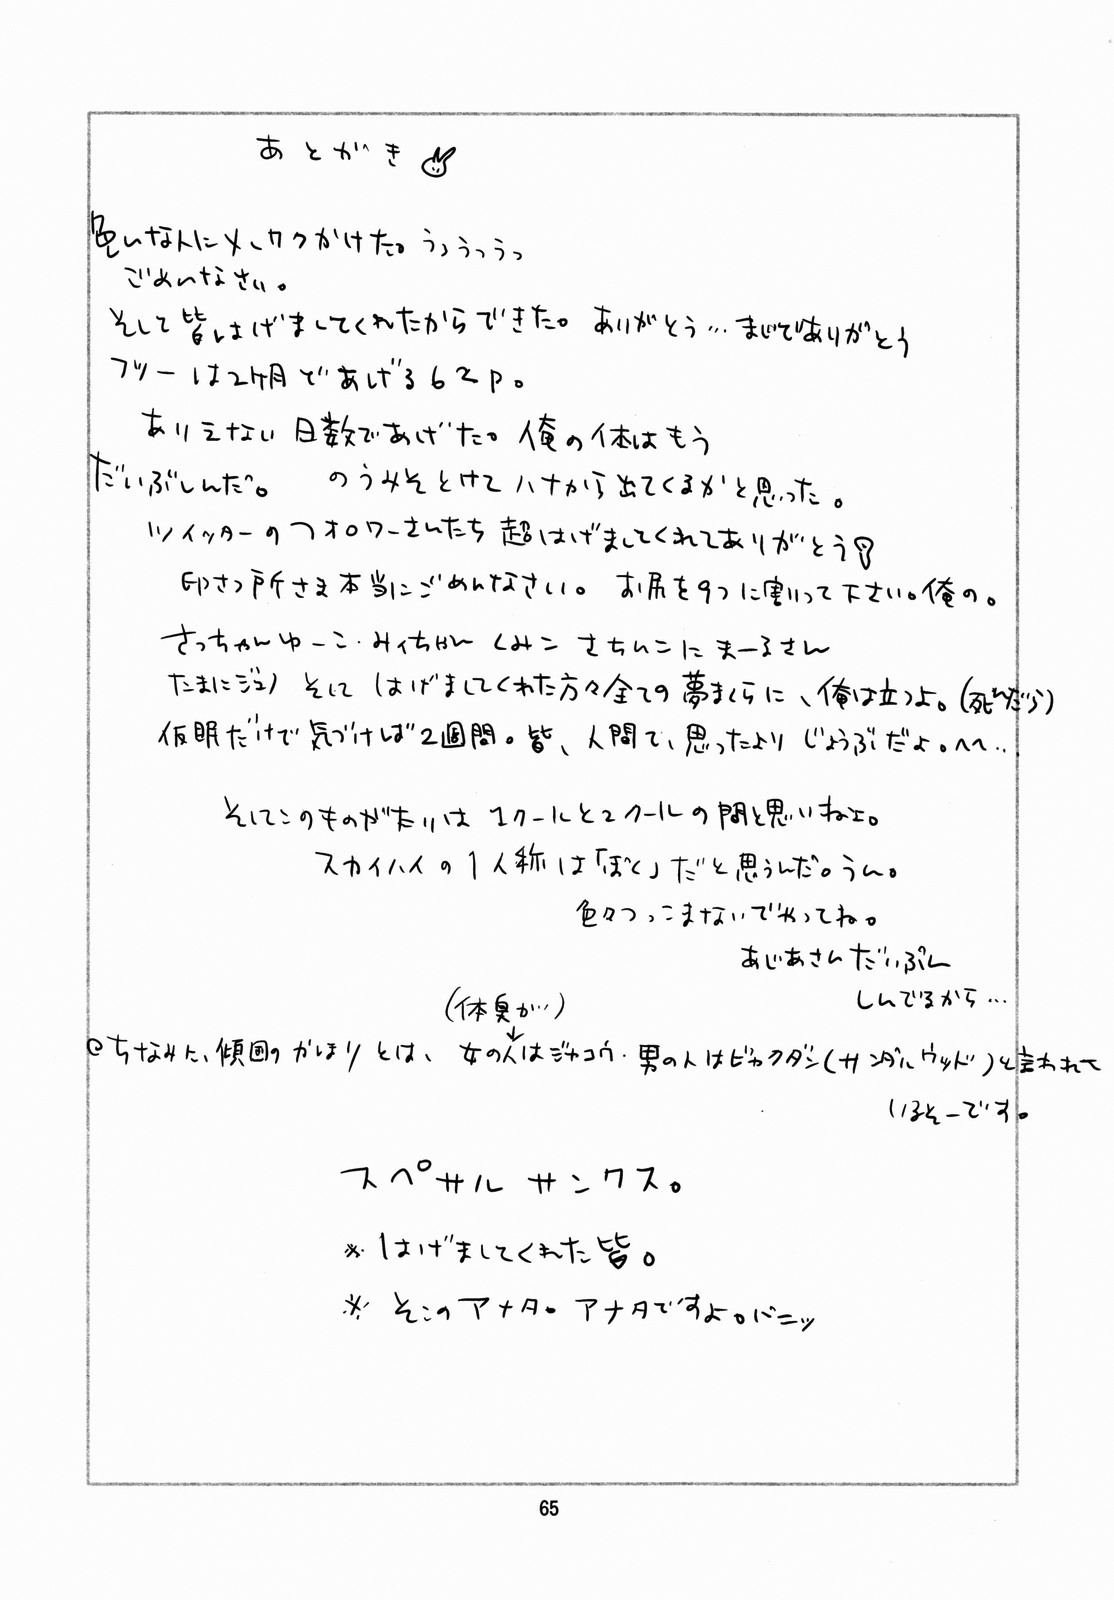 あとがき
色んな人にメーワクかけた。うっうっうっ
ごめんなさい。
そして皆はげましてくれたからできた。ありがとう…まじでありがとう
フツーは2ケ月であげる62p。
ありえない日数であげた。俺の体はもう
だいぶしんだ。 のうみそとけてハナから出てくるかと思った。
ツイッターのフォロワーさんたち超はげましてくれてありがとう!
印さつ所さま本当にごめんなさい。 お尻を9つに割って下さい。俺の。
さっちゃんゆーこ・みいちゃん くみこ さちんこに まーるさん
たまにジュノ そして はげましてくれた方々全ての夢まくらに、俺は立つよ。(死んだら)
仮眠だけで気づけば2週間。皆、人間て、思ったより じょうぶだよ。へへ…
そしてこのものがたりは 1クールと2クールの間と思いねぇ。
スカイハイの1人称は「ぼく」だと思うんだ。うん。
色々つっこまないでやってね。
あじあさんだいぶん
しんでるから…
(体臭が…)
↓
@ちなみに、傾国のかほりとは、 女の人はジャコウ・男の人はビャクダン(サンダルウッド)と言われて
いるそーです。
スペサル サンクス。
※はげましてくれた皆。
※ そこのアナタ。アナタですよ。バニッ
65